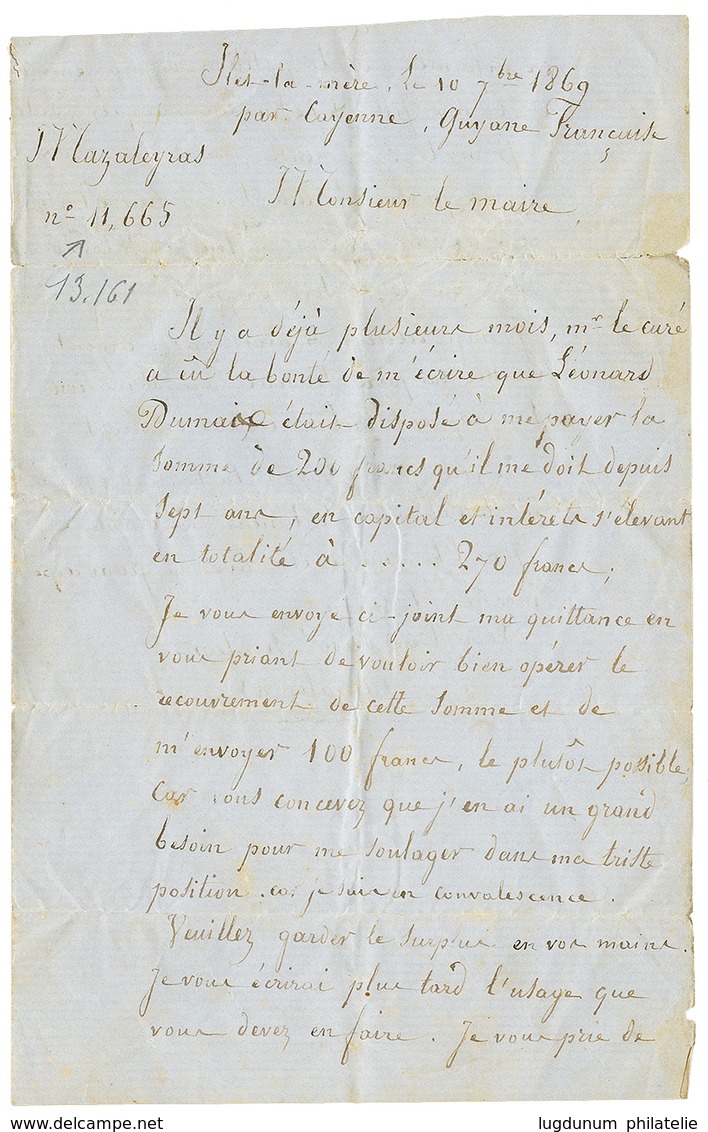 Ilet-la-mère, Le 10 7bre 1869
par Cayenne, Guyane Française
Mazaleyras
nº 11,665
13.161
Monsieur le maire,
Il y a déjà plusieurs mois, mr le curé
a eu la bonté de m'écrire que Léonard
Dumaix était disposé à me payer la
somme de 200 francs qu'il me doit depuis
Sept ans, en capital et intérêts s'élevant
en totalité à ..... 270 francs;
Je vous envoyé ci-joint ma quittance en
vous priant de vouloir bien opérer le
recouvrement de cette somme et de
m'envoyer 100 francs, le plutôt possible,
Car vous concevez que j'en ai un grand
besoin pour me soulager dans ma triste
position car je suis en convalescence.
Veuillez garder le surplus en vos mains.
Je vous écrirai plus tard l'usage que
vous devez en faire. Je vous prie de
lugdunum philatelie